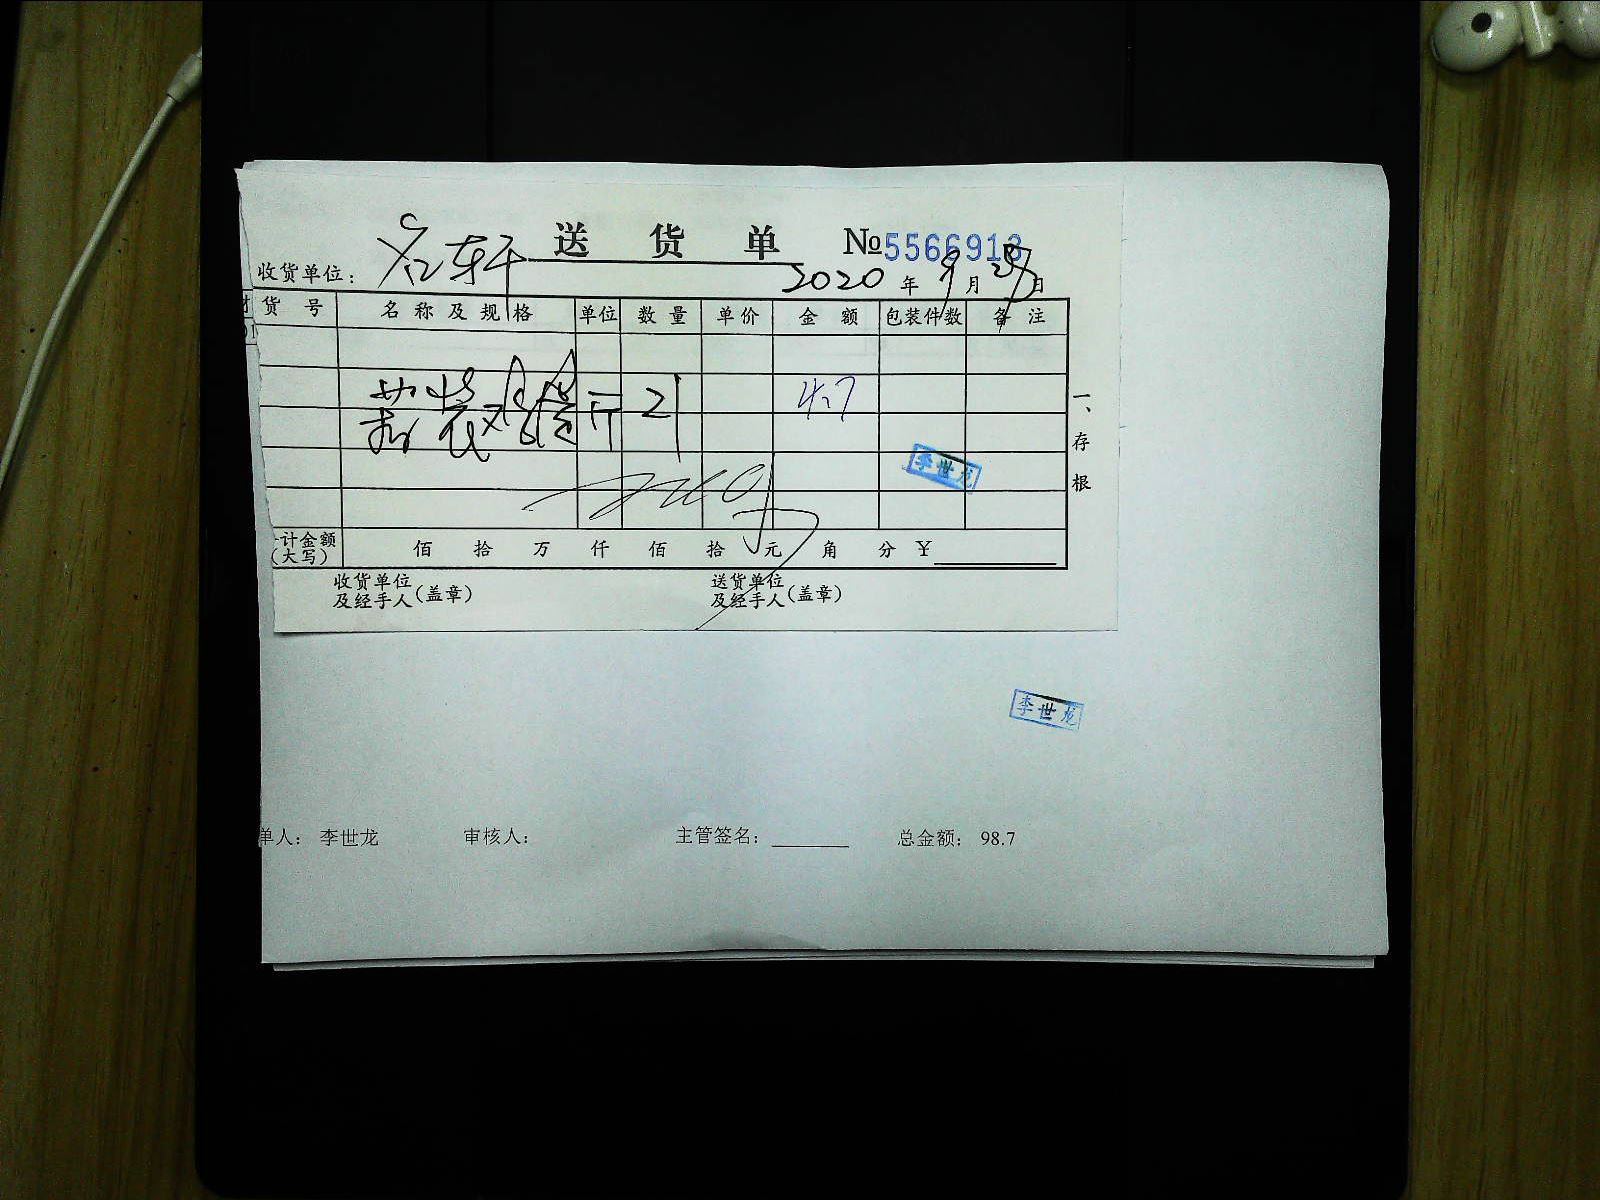 送 货 单 №5566913
收货单位：
2020 年 9 月 日
货 号 名 称 及 规 格 单位 数 量 单 价 金 额 包装件数 备 注
散装鸡蛋 斤 21 4.7
李世龙
一、存根
计金额（大写） 佰 拾 万 仟 佰 拾 元 角 分 ¥
收货单位及经手人（盖章） 送货单位及经手人（盖章）
李世龙
单人： 李世龙 审核人： 主管签名： 总金额： 98.7